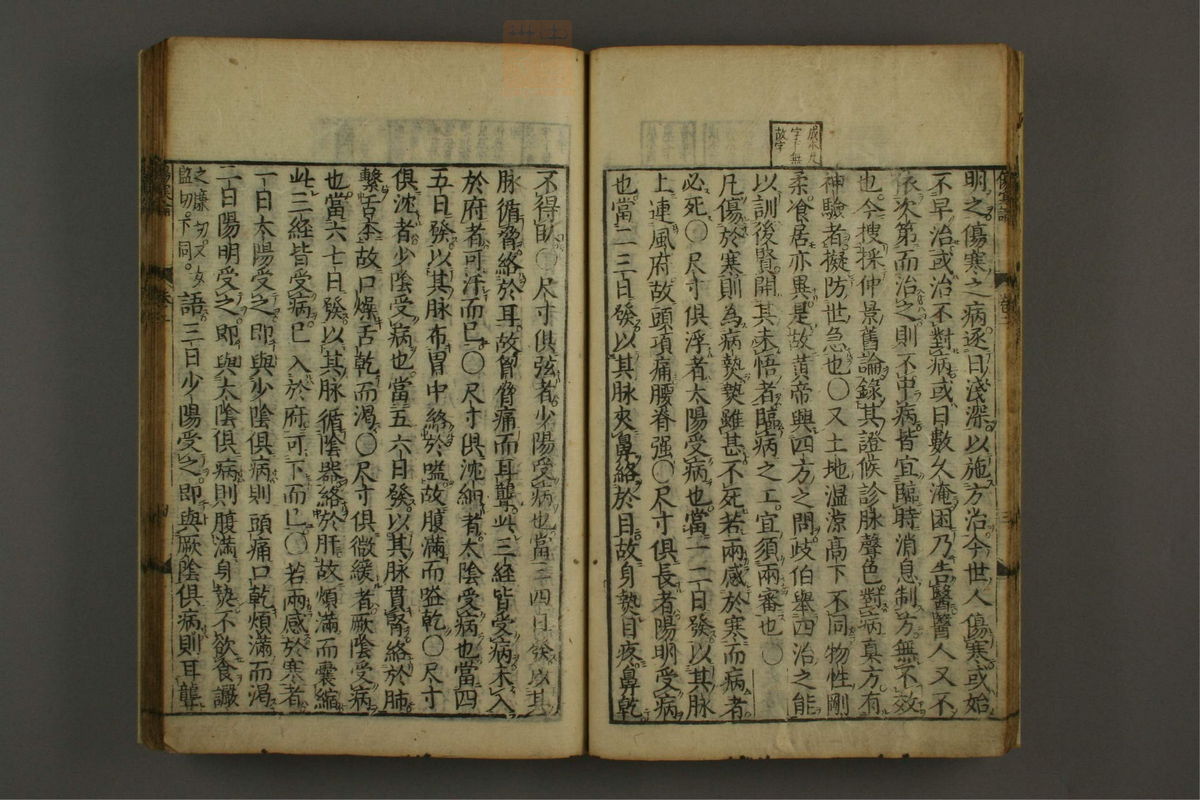 成本凡
字下無
故字
明之傷寒之病逐日淺深以施方治今世人傷寒或始
不早治或治不對病或日數久淹困乃告醫醫人又不
依次第而治之則不中病皆宜臨時消息制方無不效
也今搜採仲景舊論錄其證候診脉聲色對病真方有
神驗者擬防世急也〇又土地溫涼高下不同物性剛
柔飡居亦異是故黃帝興四方之問歧伯舉四治之能
以訓後賢開其未悟者臨病之工宜須兩審也〇
凡傷於寒則為病𤍠𤍠雖甚不死若兩感於寒而病者
必死〇尺寸俱浮者太陽受病也當一二日發以其脉
上連風府故頭項痛腰脊强〇尺寸俱長者陽明受病
也當二三日發以其脉夾鼻絡於目故身𤍠目疼鼻乾
不得臥〇尺寸俱弦者少陽受病也當三四日發以其
脉循脅絡於耳故胷脅痛而耳聾此三經皆受病未入
於府者可汗而已〇尺寸俱沈細者太陰受病也當四
五日發以其脉布胃中絡於嗌故腹滿而嗌乾〇尺寸
俱沈者少陰受病也當五六日發以其脉貫腎絡於肺
繫舌本故口燥舌乾而渴〇尺寸俱微緩者厥陰受病
也當六七日發以其脉循陰器絡於肝故煩滿而囊縮
此三經皆受病已入於府可下而已〇若兩感於寒者
一日太陽受之即與少陰俱病則頭痛口乾煩滿而渴
二日陽明受之即與太陰俱病則腹滿身𤍠不欲食譫
之廉切又女
監切下同。語三日少陽受之即與厥陰俱病則耳聾